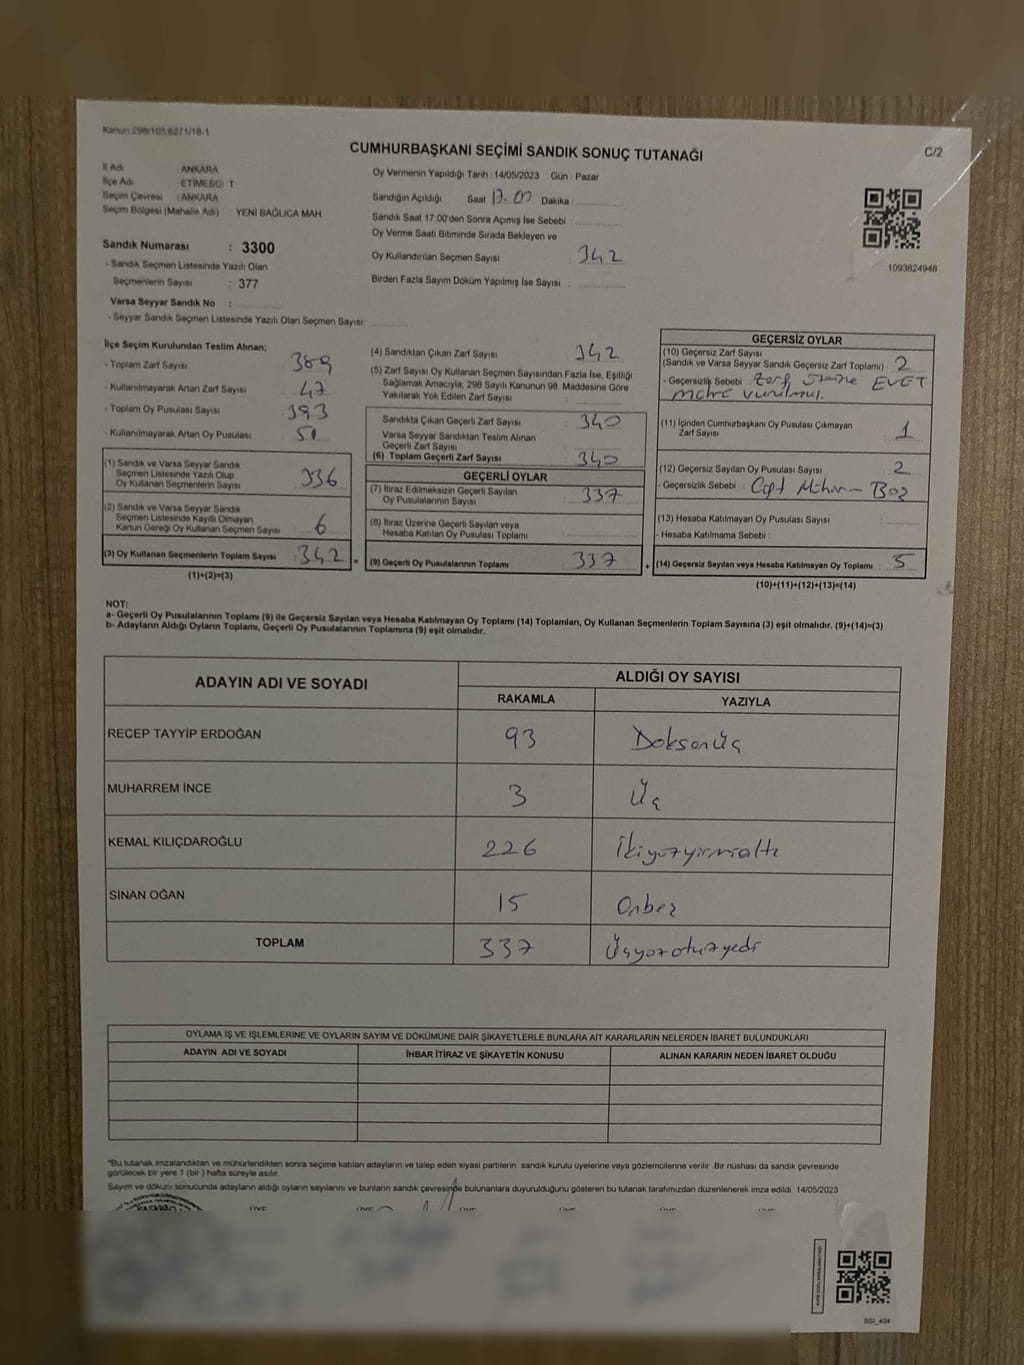 Kanun.298/105,6271/18-1
CUMHURBAŞKANI SEÇİMİ SANDIK SONUÇ TUTANAĞI
C/2
İl Adı : ANKARA
İlçe Adı : ETİMESGUT
Seçim Çevresi : ANKARA
Seçim Bölgesi (Mahalle Adı) : YENİ BAĞLICA MAH.
Sandık Numarası : 3300
- Sandık Seçmen Listesinde Yazılı Olan
Seçmenlerin Sayısı : 377
Varsa Seyyar Sandık No :
- Seyyar Sandık Seçmen Listesinde Yazılı Olan Seçmen Sayısı:
Oy Vermenin Yapıldığı Tarih : 14/05/2023 Gün : Pazar
Sandığın Açıldığı Saat 17.00 Dakika :
Sandık Saat 17.00'den Sonra Açımış İse Sebebi :
Oy Verme Saati Bitiminde Sırada Bekleyen ve
Oy Kullandırılan Seçmen Sayısı : 342
Birden Fazla Sayım Döküm Yapılmış İse Sayısı :
1093824948
İlçe Seçim Kurulundan Teslim Alınan;
- Toplam Zarf Sayısı : 389
- Kullanılmayarak Artan Zarf Sayısı : 47
- Toplam Oy Pusulası Sayısı : 393
- Kullanılmayarak Artan Oy Pusulası : 51
(1) Sandık ve Varsa Seyyar Sandık
Seçmen Listesinde Yazılı Olup
Oy Kullanan Seçmenlerin Sayısı : 336
(2) Sandık ve Varsa Seyyar Sandık
Seçmen Listesinde Kayıtlı Olmayan
Kanun Gereği Oy Kullanan Seçmen Sayısı : 6
(3) Oy Kullanan Seçmenlerin Toplam Sayısı : 342 =
(1)+(2)=(3)
(4) Sandıktan Çıkan Zarf Sayısı : 342
(5) Zarf Sayısı Oy Kullanan Seçmen Sayısından Fazla İse, Eşitliği
Sağlamak Amacıyla, 298 Sayılı Kanunun 98. Maddesine Göre
Yakılarak Yok Edilen Zarf Sayısı :
Sandıkta Çıkan Geçerli Zarf Sayısı : 340
Varsa Seyyar Sandıktan Teslim Alınan
Geçerli Zarf Sayısı :
(6) Toplam Geçerli Zarf Sayısı : 340
GEÇERLİ OYLAR
(7) İtiraz Edilmeksizin Geçerli Sayılan
Oy Pusulalarının Sayısı : 337
(8) İtiraz Üzerine Geçerli Sayılan veya
Hesaba Katılan Oy Pusulası Toplamı :
(9) Geçerli Oy Pusulalarının Toplamı : 337 +
GEÇERSİZ OYLAR
(10) Geçersiz Zarf Sayısı
(Sandık ve Varsa Seyyar Sandık Geçersiz Zarf Toplamı) : 2
- Geçersizlik Sebebi : Zarf üzerine EVET
mührü vurulmuş.
(11) İçinden Cumhurbaşkanı Oy Pusulası Çıkmayan
Zarf Sayısı : 1
(12) Geçersiz Sayılan Oy Pusulası Sayısı : 2
- Geçersizlik Sebebi : Çift Mühür - Boş
(13) Hesaba Katılmayan Oy Pusulası Sayısı :
- Hesaba Katılmama Sebebi :
(14) Geçersiz Sayılan veya Hesaba Katılmayan Oy Toplamı : 5
(10)+(11)+(12)+(13)=(14)
NOT:
a- Geçerli Oy Pusulalarının Toplamı (9) ile Geçersiz Sayılan veya Hesaba Katılmayan Oy Toplamı (14) Toplamları, Oy Kullanan Seçmenlerin Toplam Sayısına (3) eşit olmalıdır. (9)+(14)=(3)
b- Adayların Aldığı Oyların Toplamı, Geçerli Oy Pusulalarının Toplamına (9) eşit olmalıdır.
ADAYIN ADI VE SOYADI
ALDIĞI OY SAYISI
RAKAMLA YAZIYLA
RECEP TAYYİP ERDOĞAN 93 Doksanüç
MUHARREM İNCE 3 Üç
KEMAL KILIÇDAROĞLU 226 İkiyüzyirmialtı
SİNAN OĞAN 15 Onbeş
TOPLAM 337 Üçyüzotuzyedi
OYLAMA İŞ VE İŞLEMLERİNE VE OYLARIN SAYIM VE DÖKÜMÜNE DAİR ŞİKAYETLERLE BUNLARA AİT KARARLARIN NELERDEN İBARET BULUNDUKLARI
ADAYIN ADI VE SOYADI İHBAR İTİRAZ VE ŞİKAYETİN KONUSU ALINAN KARARIN NEDEN İBARET OLDUĞU
*Bu tutanak imzalandıktan ve mühürlendikten sonra seçime katılan adayların ve talep eden siyasi partilerin sandık kurulu üyelerine veya gözlemcilerine verilir .Bir nüshası da sandık çevresinde
görülecek bir yere 1 (bir ) hafta süreyle asılır.
Sayım ve dökümü sonucunda adayların aldığı oyların sayılarını ve bunların sandık çevresinde bulunanlara duyurulduğunu gösteren bu tutanak tarafımızdan düzenlenerek imza edildi. 14/05/2023
SSI_404